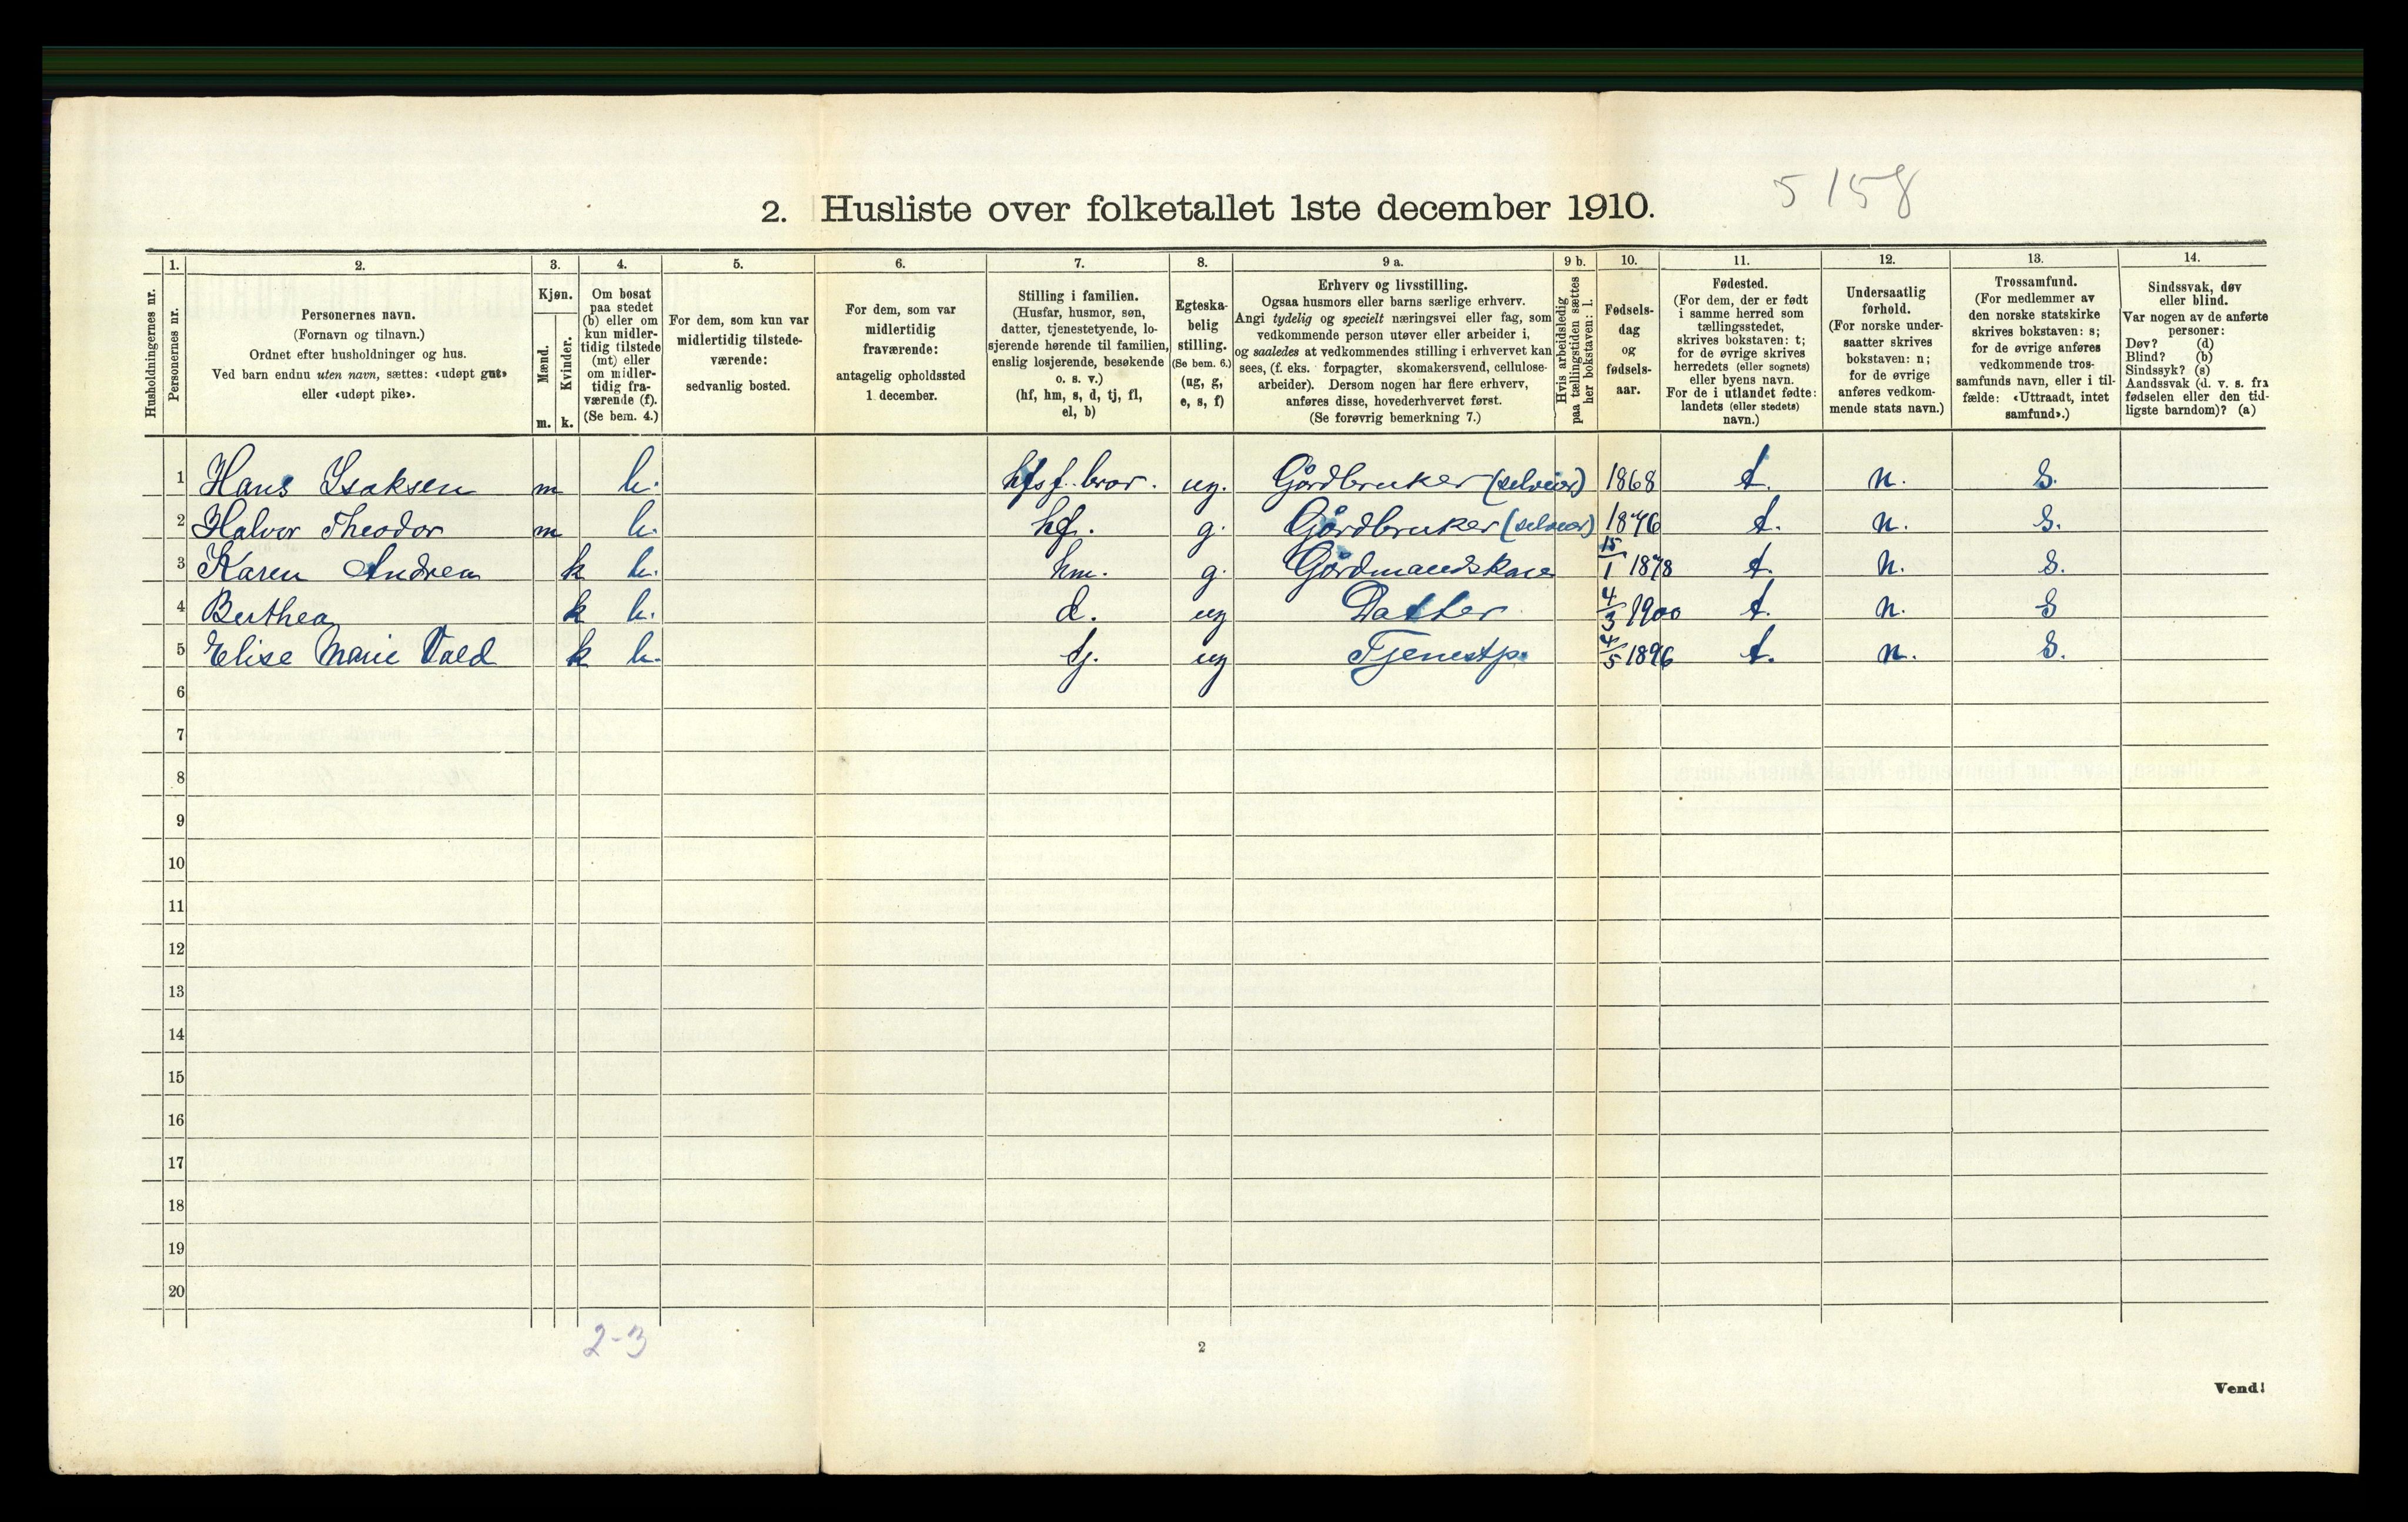 5 158
2. Husliste over folketallet 1ste december 1910.
Husholdningernes nr.
1. Personernes nr.
2. Personernes navn.
(Fornavn og tilnavn.)
Ordnet efter husholdninger og hus.
Ved barn endnu uten navn, sættes: «udøpt gut»
eller «udøpt pike».
3. Kjøn.
Mænd. m.
Kvinder. k.
4. Om bosat
paa stedet
(b) eller om
kun midler-
tidig tilstede
(mt) eller
om midler-
tidig fra-
værende (f).
(Se bem. 4.)
5. For dem, som kun var
midlertidig tilstede-
værende:
sedvanlig bosted.
6. For dem, som var
midlertidig
fraværende:
antagelig opholdssted
1. december.
7. Stilling i familien.
(Husfar, husmor, søn,
datter, tjenestetyende, lo-
sjerende hørende til familien,
enslig losjerende, besøkende
o. s. v.)
(hf, hm, s, d, tj, fl,
el, b)
8. Egteska-
belig
stilling.
(Se bem. 6.)
(ug, g,
e, s, f)
9 a. Erhverv og livsstilling.
Ogsaa husmors eller barns særlige erhverv.
Angi tydelig og specielt næringsvei eller fag, som
vedkommende person utøver eller arbeider i,
og saaledes at vedkommendes stilling i erhvervet kan
sees, (f. eks. forpagter, skomakersvend, cellulose-
arbeider). Dersom nogen har flere erhverv,
anføres disse, hovederhvervet først.
(Se forøvrig bemerkning 7.)
9 b. Hvis arbeidsledig
paa tællingstiden sættes
her bokstaven: l.
10. Fødsels-
dag
og
fødsels-
aar.
11. Fødested.
(For dem, der er født
i samme herred som
tællingsstedet,
skrives bokstaven: t;
for de øvrige skrives
herredets (eller sognets)
eller byens navn.
For de i utlandet fødte:
landets (eller stedets)
navn.)
12. Undersaatlig
forhold.
(For norske under-
saatter skrives
bokstaven: n;
for de øvrige
anføres vedkom-
mende stats navn.)
13. Trossamfund.
(For medlemmer av
den norske statskirke
skrives bokstaven: s;
for de øvrige anføres
vedkommende tros-
samfunds navn, eller i til-
fælde: «Uttraadt, intet
samfund».)
14. Sindssvak, døv
eller blind.
Var nogen av de anførte
personer:
Døv? (d)
Blind? (b)
Sindssyk? (s)
Aandssvak (d. v. s. fra
fødselen eller den tid-
ligste barndom)? (a)
1 Hans Isaksen m b. hfs f. bror. ug. Gårdbruker (selveier) 1868 t. n. s.
2 Halvor Theodor m b. hf. g. Gårdbruker (selveier) 1876 t. n. s.
3 Karen Andrea k b. hm. g. Gårdmandskone 15/1 1878 t. n. s.
4 Berthea k b. d. ug Datter 4/3 1900 t. n. s
5 Elise Marie k b. tj. ug Tjenestp. 4/5 1896 t. n. s.
6
7
8
9
10
11
12
13
14
15
16
17
18
19
20
2-3
2
Vend!